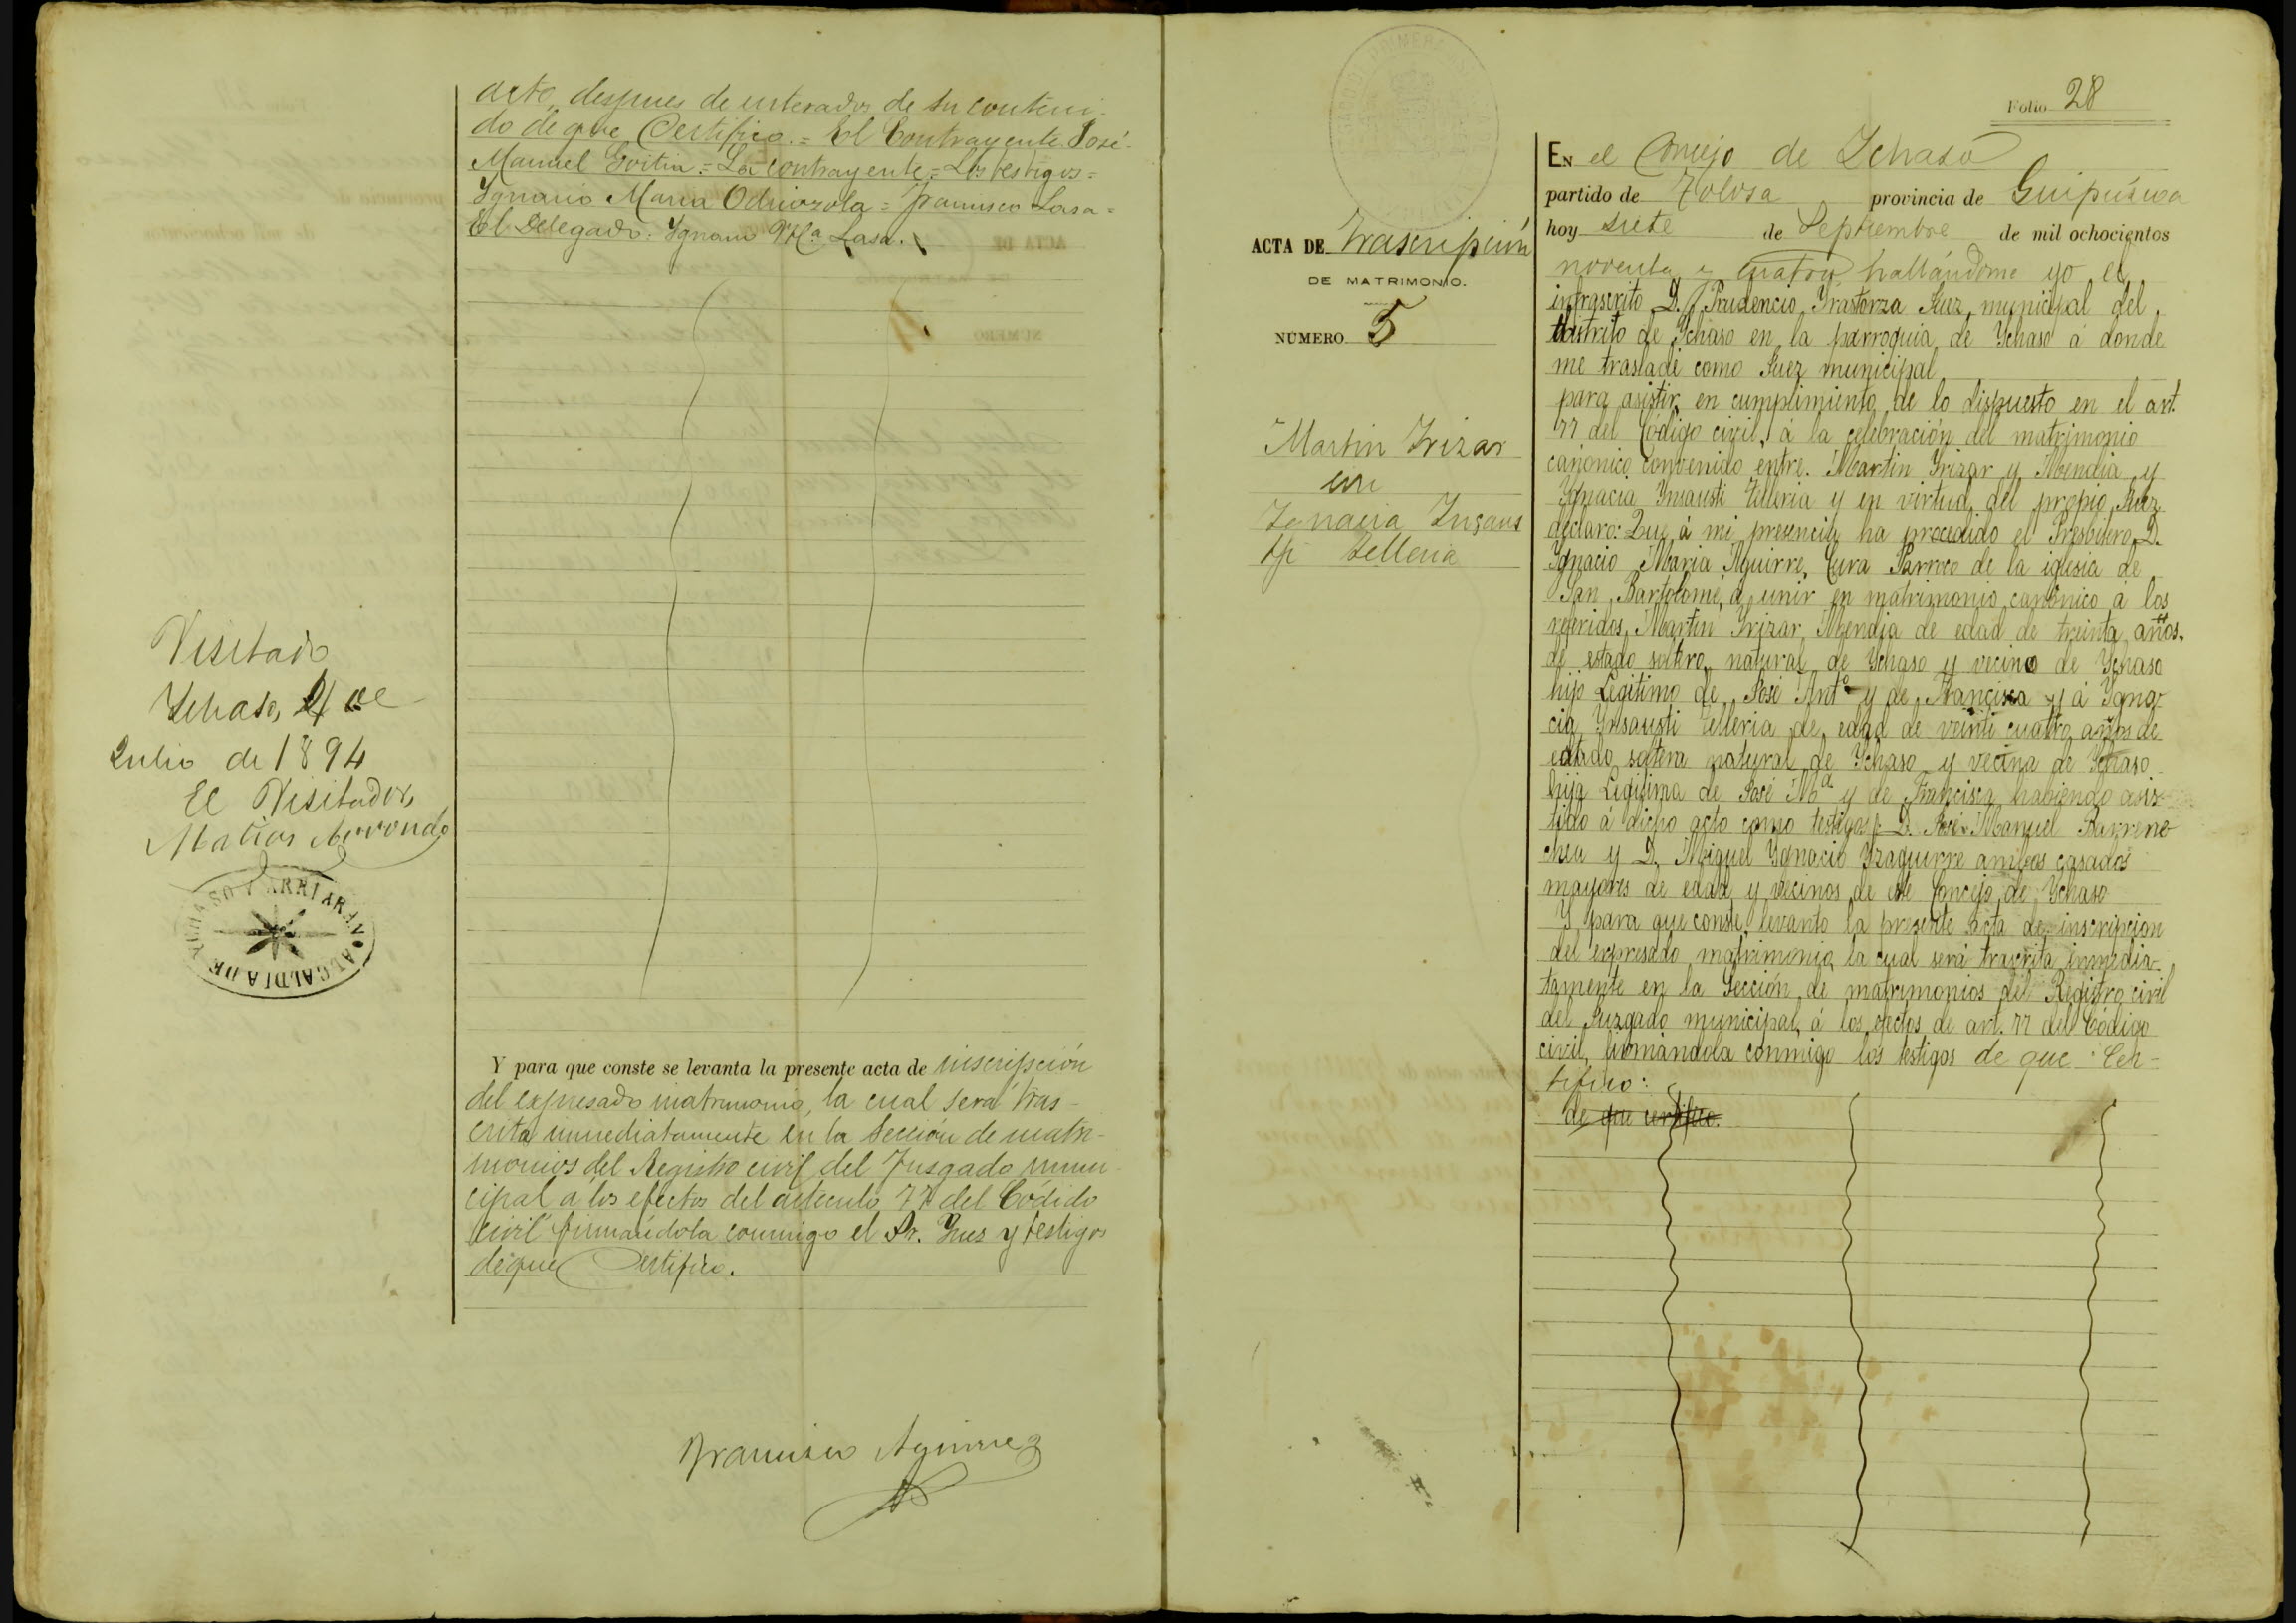 acto, despues de enterados de su conteni-
do de que Certifico.= El Contrayente José-
Manuel Goitia.= La contrayente.= Los testigos=
Ygnacio Maria Odriozola = Francisco Lasa=
El Delegado: Ygnacio Mª Lasa.
Visitado
Ychaso, 21 de
Julio de 1894
El Visitador,
Matias Arrondo
ALCALDIA DE YCHASO Y ARRIARAN
Y para que conste se levanta la presente acta de inscripción
del expresado matrimonio, la cual será tras-
crita inmediatamente en la Sección de matri-
monios del Registro civil del Jusgado muni-
cipal a los efectos del articulo 77 del Códido
civil" firmándola conmigo el Sr. Juez y testigos
de que Certifico.
Francisco Aguirre
Folio 28
ACTA DE Trascripción
DE MATRIMONIO.
NÚMERO 5
Martin Irizar
con
Ignacia Insaus
ti Telleria
EN el Concejo de Ichaso
partido de Tolosa provincia de Guipúzcoa
hoy siete de Septiembre de mil ochocientos
noventa y cuatro, hallándome yo el
infrascrito D. Prudencio Yrastorza Juez municipal del
distrito de Ychaso en la parroquia de Ychaso á donde
me trasladé como Juez municipal
para asistir, en cumplimiento de lo dispuesto en el art.
77 del Código civil, á la celebración del matrimonio
canonico convenido entre. Martin Yrizar y Mendia y
Ygnacia Ynsausti Telleria y en virtud del propio Juez
declaro: Que á mi presencia ha procedido el Presbitero D.
Ygnacio Maria Aguirre, Cura Párroco de la iglesia de
San Bartolomé, á unir en matrimonio canónico á los
referidos Martin Yrizar Mendia de edad de treinta años,
de estado soltero natural de Ychaso y vecino de Ychaso
hijo Legitimo de José Antº y de Francisca y á Ygna-
cia Ynsausti Telleria de edad de veinti cuatro años de
estado soltera natural de Ychaso y vecina de Ychaso
hija Legitima de José Mª y de Francisca habiendo asis-
tido á dicho acto como testigos D. José Manuel Barrene-
chea y D. Miguel Ygnacio Yzaguirre ambos casados
mayores de edad y vecinos de este Concejo de Ychaso
Y para que conste, levanto la presente acta de inscripcion
del expresado matrimonio, la cual será trascrita inmedia-
tamente en la Sección de matrimonios del Registro civil
del Juzgado municipal, á los efectos de art. 77 del Código
civil, firmandola conmigo los testigos de que Cer-
tifico:
de que certifico.